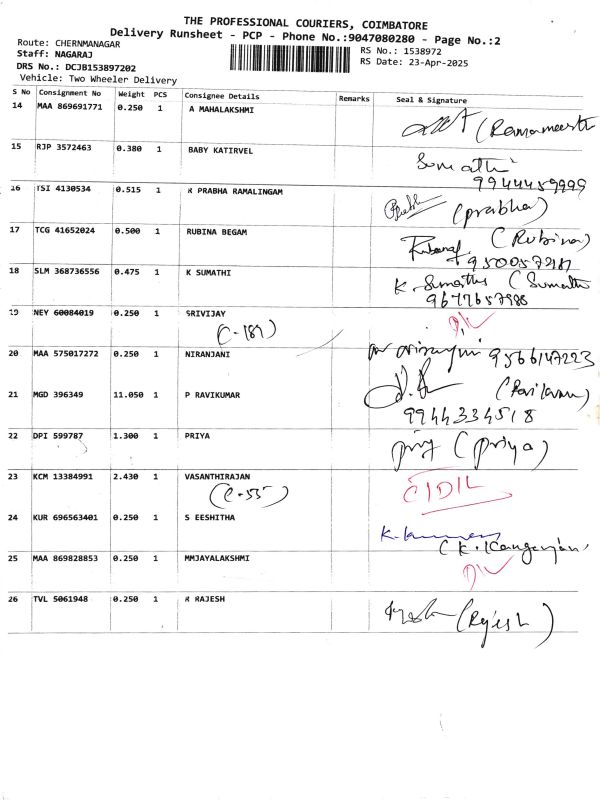 THE PROFESSIONAL COURIERS, COIMBATORE
Delivery Runsheet - PCP - Phone No.:9047080280 - Page No.:2
Route: CHERNMANAGAR
Staff: NAGARAJ
DRS No.: DCJB153897202
Vehicle: Two Wheeler Delivery
RS No.: 1538972
RS Date: 23-Apr-2025
S No Consignment No Weight PCS Consignee Details Remarks Seal & Signature
14 MAA 869691771 0.250 1 A MAHALAKSHMI
15 RJP 3572463 0.380 1 BABY KATIRVEL Sumathi
9944459999
16 TSI 4130534 0.515 1 R PRABHA RAMALINGAM Prabha (prabha)
17 TCG 41652024 0.500 1 RUBINA BEGAM (Rubina)
18 SLM 368736556 0.475 1 K SUMATHI K. Sumathi (Sumathi
9677657988
19 NEY 60084019 0.250 1 SRIVIJAY D/L
(C-189)
20 MAA 575017272 0.250 1 NIRANJANI 9566147223
21 MGD 396349 11.050 1 P RAVIKUMAR
9944334518
22 DPI 599787 1.300 1 PRIYA priy (priya)
23 KCM 13384991 2.430 1 VASANTHIRAJAN C/D/L
(C-55)
24 KUR 696563401 0.250 1 S EESHITHA
25 MAA 869828853 0.250 1 MMJAYALAKSHMI D/L
26 TVL 5061948 0.250 1 R RAJESH (Rajesh)